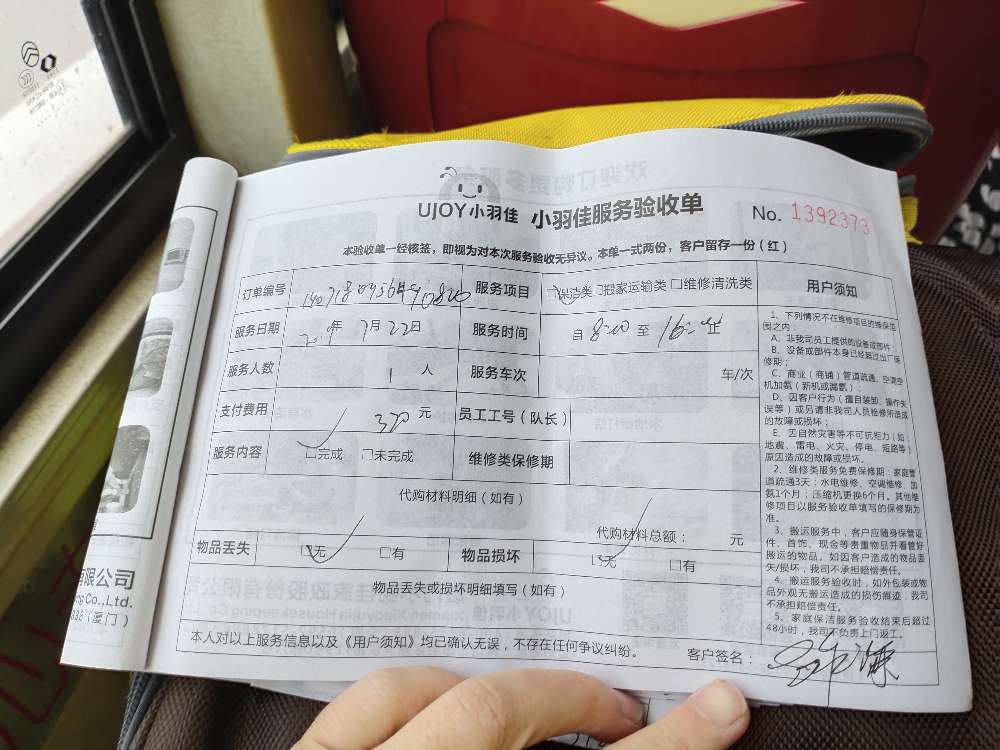 UJOY小羽佳 小羽佳服务验收单 No. 1392373
本验收单一经核签，即视为对本次服务验收无异议。本单一式两份，客户留存一份（红）
订单编号 服务项目 保洁类 □搬家运输类 □维修清洗类
服务日期 年 7月22日 服务时间 自 8:00 至 16:00 止
服务人数 1 人 服务车次 车/次
支付费用 320 元 员工工号（队长）
服务内容 □完成 □未完成 维修类保修期
代购材料明细（如有） 代购材料总额： 元
物品丢失 □无 □有 物品损坏 □无 □有
物品丢失或损坏明细填写（如有）
本人对以上服务信息以及《用户须知》均已确认无误，不存在任何争议纠纷。 客户签名：
用户须知
1、下列情况不在维修项目的维保范
围之内：
A、非我司员工提供的设备或部件；
B、设备或部件本身已经超过出厂保
修期；
C、商业（商铺）管道疏通、空调空
机加氨（新机或漏氨）；
D、因客户行为（擅自装卸、操作失
误等）或另请非我司人员检修所造成
的故障或损坏；
E、因自然灾害等不可抗拒力（如：
地震、雷电、火灾、停电、短路等）
原因造成的故障或损坏。
2、维修类服务免费保修期：家庭管
道疏通3天；水电维修、空调维修、加
氨1个月；压缩机更换6个月。其他维
修项目以服务验收单填写的保修期为
准。
3、搬运服务中，客户应随身保管证
件、首饰、现金等贵重物品并看管好
搬运的物品。如因客户造成的物品丢
失/损坏，我司不承担赔偿责任。
4、搬运服务验收时，如外包装或物
品外观无搬运造成的损伤痕迹，我司
不承担赔偿责任。
5、家庭保洁服务验收结束后超过
48小时，我司不负责上门返工。
有限公司
ng Co.,Ltd.
（厦门）